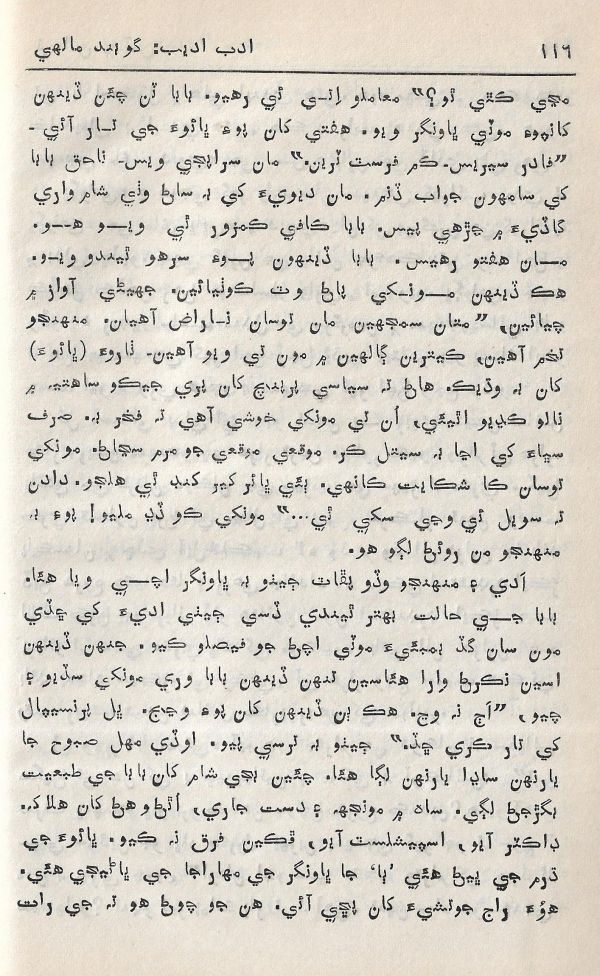 ١١٦ ادب اديب: گوبند مالهي
مڃي ڪٿي ٿو؟” معاملو اِئـي ئي رهيو. بابا ٽن چئن ڏينهن
کانپوءِ موٽي ڀاونگر ويو. هفتي کان پوءِ ڀائوءَ جي تـار آئي -
”فادر سيريس. ڪم فرسٽ ٽرين.” مان سراپجي ويس. ناحق بابا
کي سامهون جواب ڏنم. مان ديويءَ کي بہ ساڻ وٺي شام واري
گاڏيءَ ۾ چڙهي پيس. بابا ڪافي ڪمزور ٿي ويـو هـو.
مـان هفتو رهيس. بابا ڏينهون پـوءِ سرهو ٿيندو ويـو.
هڪ ڏينهن مـونـکي پاڻ وٽ ڪوٺيائين. جهيڻي آواز ۾
چيائين، ”متان سمجهين مان توسان نـاراض آهيان. منهنجو
تخم آهين، ڪيترين ڳالهين ۾ مون تي ويو آهين. ناروءَ (ڀائوءَ)
کان بہ وڌيڪ. هاڻ تہ سياسي پرپنچ کان پري جيڪو ساهتيہ ۾
نالو ڪڍيو اٿيئي، اُن تي مونکي خوشي آهي تہ فخر بہ. صرف
سڀاءَ کي اڃا بہ سيتل ڪر. موقعي موقعي جو مرم سڃاڻ. مونکي
توسان ڪا شڪايت ڪانهي. ٻئي ڀائر کير کنڊ ٿي هلجو. دادن
تہ سويل ئي وڃي سکي ٿي...” مونکي کو ڏڍ مليو! پوءِ بہ
منهنجو من روئڻ لڳو هو.
اَدي ۽ منهنجو وڏو ڀڦاٽ جيٺو بہ ڀاونگر اچـي ويا هئا.
بابا جـي حالت بهتر ٿيندي ڏسي جيٺي اديءَ کي ڇڏي
مون سان گڏ بمبئيءَ موٽي اچڻ جو فيصلو ڪيو. جنهن ڏينهن
اسين نڪرڻ وارا هئاسين تنهن ڏينهن بابا وري مونکي سڏيو ۽
چيو، ”اَڄ نہ وڃ. هڪ ٻن ڏينهن کان پوءِ وڃج. ڀل پرنسيپال
کي تار ڪري ڇڏ.” جيٺو بہ ترسي پيو. اوڏي مهل صبوح جا
يارنهن ساڍا يارنهن لڳا هئا. چئين بجي شام کان بابا جي طبعيت
بگڙجڻ لڳي. ساہ ۾ مونجهہ ۽ دست جاري، اُٿڻ وهڻ کان هلاڪ.
ڊاڪٽر آيو، اسپيشلسٽ آيو، ڦڪين فرق نہ ڪيو. ڀائوءَ جي
ڌرم جي ڀيڻ هئي ’ٻا‘ جا ڀاونگر جي مهاراجا جي ڀاڻيجي هئي.
هوُءَ راڄ جوتشيءَ کان پڇي آئي. هن جو چوڻ هو تہ جي رات